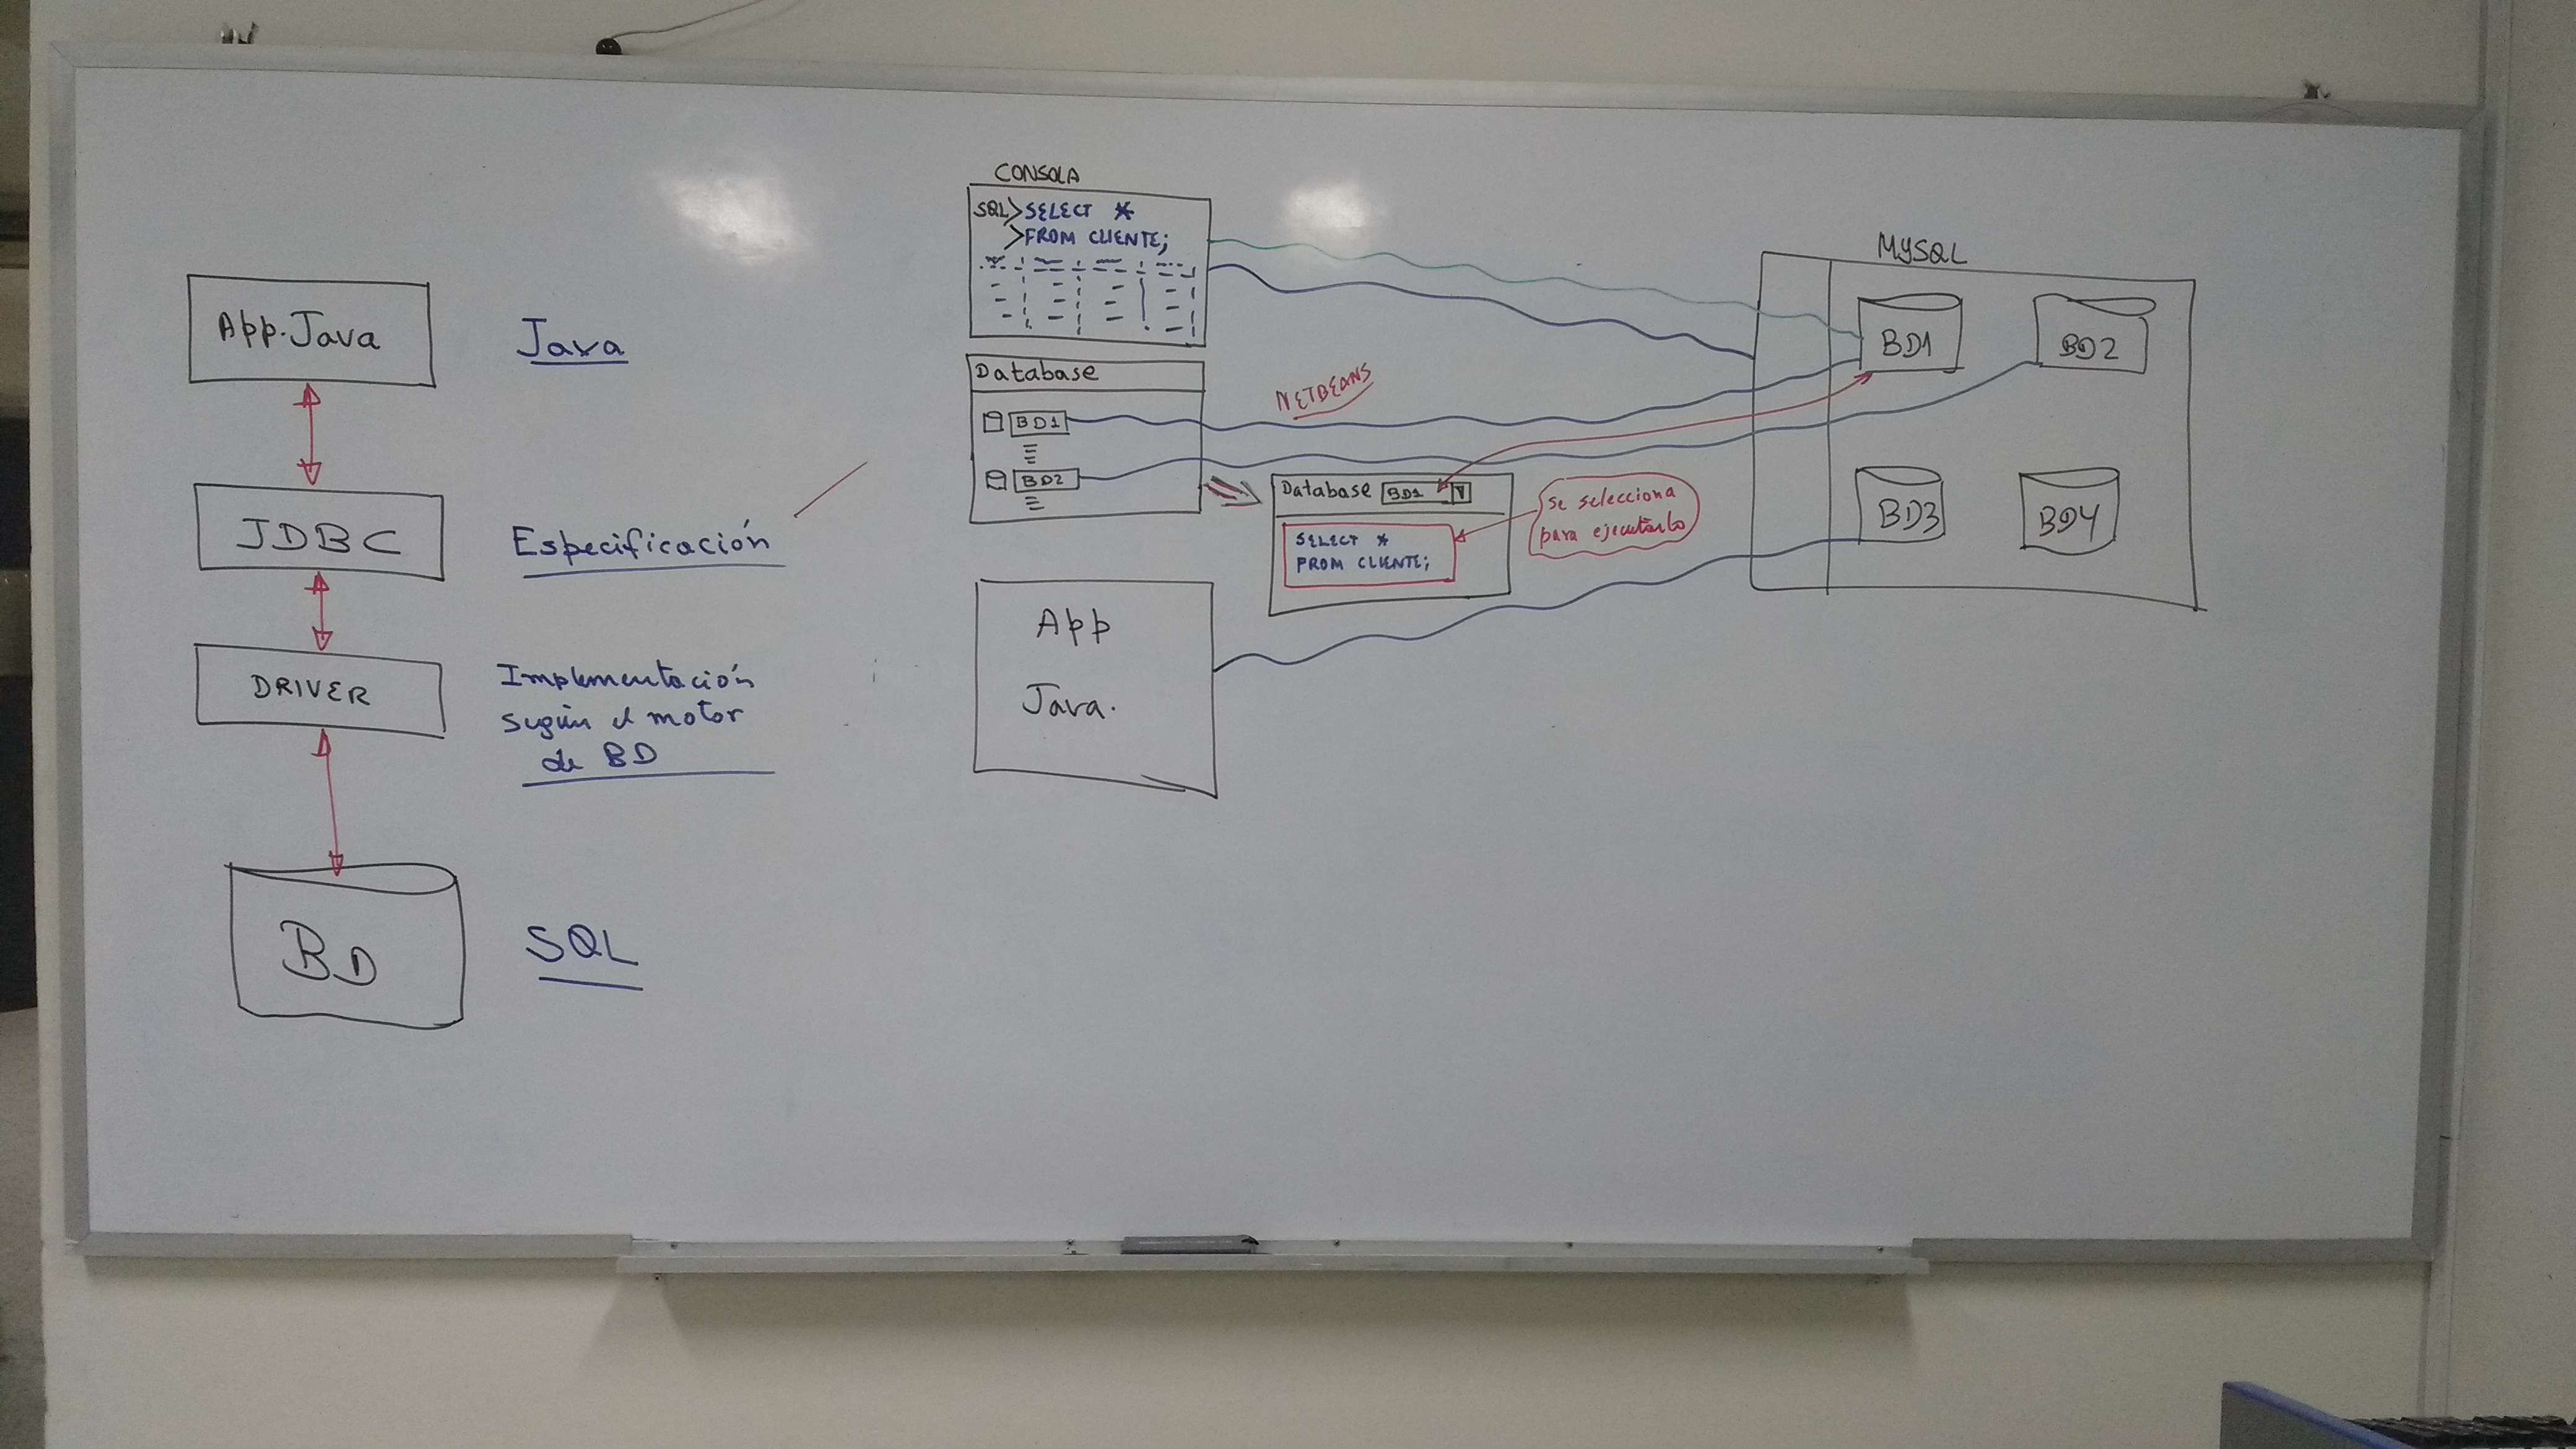 App.Java
Java
JDBC
Especificación
DRIVER
Implementación
según el motor
de BD
BD
SQL
CONSOLA
SQL>SELECT *
>FROM CLIENTE;
Database
BD1
BD2
NETBEANS
Database BD1
SELECT *
FROM CLIENTE;
se selecciona
para ejecutarlo
App
Java.
MYSQL
BD1
BD2
BD3
BD4